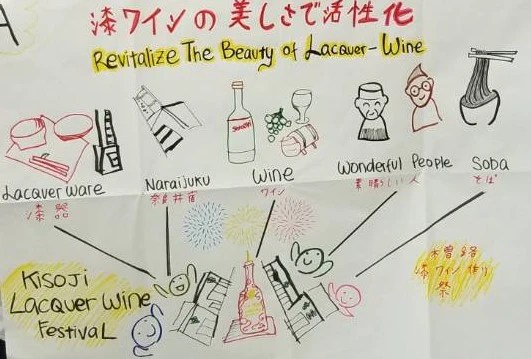 A
漆ワインの美しさで活性化
Revitalize The Beauty of Lacquer-Wine
Lacquer ware
漆器
Naraijuku
奈良井宿
Wine
ワイン
Wonderful People
素晴らしい人
Soba
そば
Kisoji
Lacquer Wine
Festival
木曽路
漆ワイン作り
祭